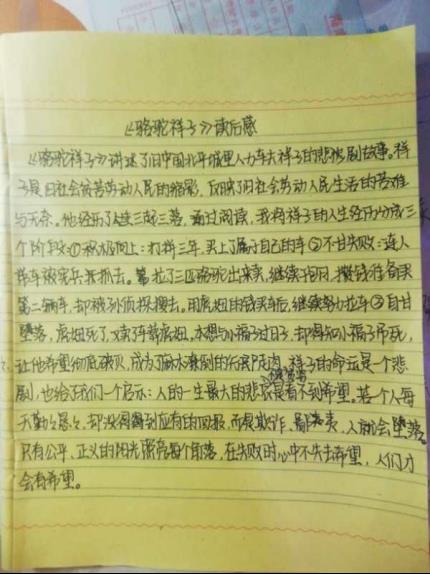 《骆驼祥子》读后感
《骆驼祥子》讲述了旧中国北平城里人力车夫祥子的悲惨剧故事。祥
子是旧社会被苦劳动人民的缩影,反映了旧社会劳动人民生活的苦难
与无奈。他经历了人生三起三落,通过阅读,我将祥子的人生经历分成三
个阶段:①积极向上:打拼三年,买上了属于自己的车②不甘失败:连人
带车被宪兵抓去。拉了三匹骆驼出来卖,继续拉车,攒钱准备买
第二辆车,却被孙侦探搜去。用虎妞的钱买车后,继续努力拉车③自甘
堕落,虎妞死了,又卖了车葬虎妞。本想与小福子过日子,却得知小福子吊死,
让他希望彻底破灭,成为了麻木潦倒的行尸走肉。祥子的命运是个悲
剧,也给了我们一个启示:人的一生最大的悲哀是看不到希望。某个人每
天勤勤恳恳,却没得到应有的回报,而是欺诈、,人就会堕落。
只有公平、正义的阳光照亮每个角落,在失败时心中不失去希望,人们才
会有希望。